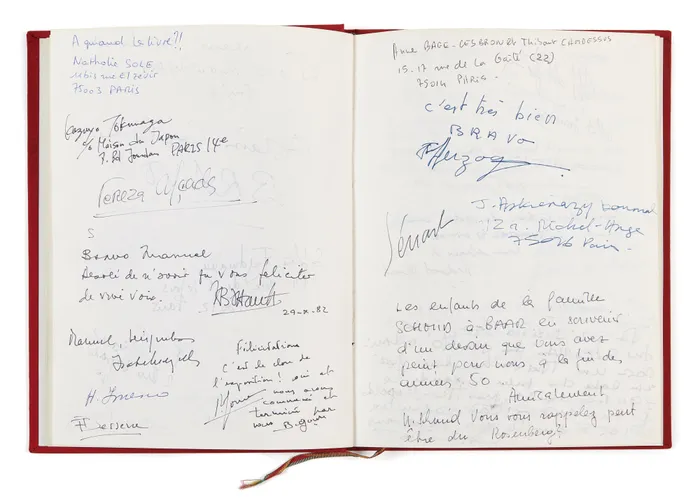 A quand le livre?!
Nathalie SOLE
11 bis rue elzévir
75003 PARIS
Kazuyo Tokunaga
c/o Maison du Japon
7. Bd Jourdan PARIS 14e
Tereza
S
Bravo Manuel
Désolé de n'avoir pu vous féliciter
de vive voix.
29-X-82
Manuel,
H.
Félicitations
C'est le clou de
l'exposition! oui et
nous avons
commencé et
terminé par
vous B.
Anne BAGE-CESBRON et Thibaut CAMDESSUS
15-17 rue de la Gaîté (22)
75014 PARIS.
c'est très bien
BRAVO
Herzog
Sénart
J.
12 r. Michel-Ange
75016 Paris.
Les enfants de la famille
SCHMID à BAAR en souvenir
d'un dessin que vous avez
peint pour nous, à la fin des
années 50
Amicalement
Vous vous rappelez peut
être du Rosenberg?